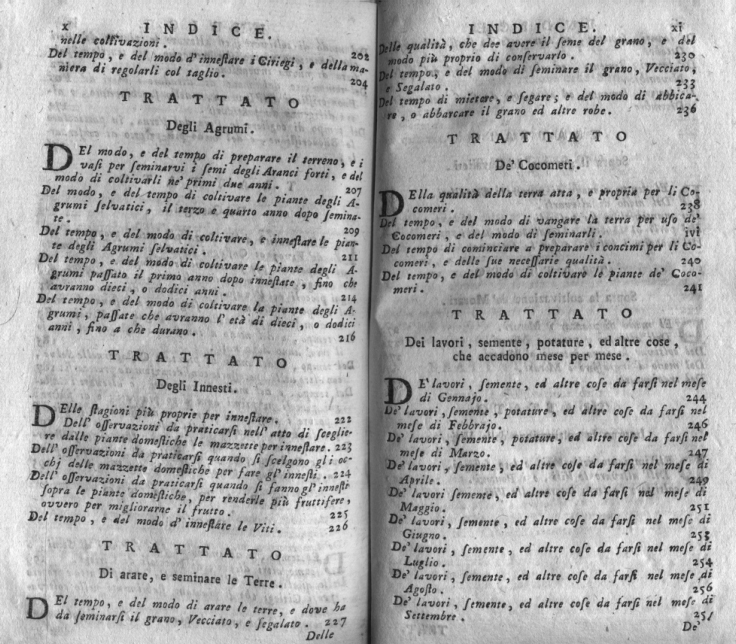 x
INDICE.
nelle coltivazioni. 202
Del tempo, e del modo d'inneſtare i Ciriegi, e della ma-
niera di regolarli col taglio. 204
TRATTATO
Degli Agrumi.
DEl modo, e del tempo di preparare il terreno, e i
vaſi per ſeminarvi i ſemi degli Aranci forti, e del
modo di coltivarli ne' primi due anni. 207
Del modo, e del tempo di coltivare le piante degli A-
grumi ſelvatici, il terzo e quarto anno dopo ſemina-
te. 209
Del tempo, e del modo di coltivare, e inneſtare le pian-
te degli Agrumi ſelvatici. 211
Del tempo, e del modo di coltivare le piante degli A-
grumi paſſato il primo anno dopo inneſtate, fino che
avranno dieci, o dodici anni. 214
Del tempo, e del modo di coltivare la piante degli A-
grumi, paſſate che avranno l'età di dieci, o dodici
anni, fino a che durano. 216
TRATTATO
Degli Innesti.
DElle ſtagioni più proprie per inneſtare. 222
Dell' oſſervazioni da praticarſi nell' atto di sceglie-
re dalle piante domeſtiche le mazzette per inneſtare. 223
Dell' oſſervazioni da praticarſi quando ſi ſcelgono gli oc-
chj delle mazzette domeſtiche per fare gl' inneſti. 224
Dell' oſſervazioni da praticarſi quando ſi fanno gl' inneſti
ſopra le piante domeſtiche, per renderle più fruttifere,
ovvero per migliorarne il frutto. 225
Del tempo, e del modo d' inneſtare le Viti. 226
TRATTATO
Di arare, e seminare le Terre.
DEl tempo, e del modo di arare le terre, e dove ha
da ſeminarſi il grano, Vecciato, e ſegalato. 227
Delle
INDICE. xi
Delle qualità, che dee avere il ſeme del grano, e del
modo più proprio di conſervarlo. 230
Del tempo, e del modo di ſeminare il grano, Vecciato,
e Segalato. 233
Del tempo di mietere, e ſegare; e del modo di abbica-
re, o abbarcare il grano ed altre robe. 236
TRATTATO
De' Cocomeri.
DElla qualità della terra atta, e propria per li Co-
comeri. 238
Del tempo, e del modo di vangare la terra per uſo de'
Cocomeri, e del modo di ſeminarli. ivi
Del tempo di continciare a preparare i concimi per li Co-
comeri, e delle ſue neceſſarie qualità. 240
Del tempo, e del modo di coltivare le piante de' Coco-
meri. 241
TRATTATO
Dei lavori, semente, potature, ed altre cose,
che accadono mese per mese.
DE' lavori, ſemente, ed altre coſe da farſi nel meſe
di Gennajo. 244
De' lavori, ſemente, potature, ed altre coſe da farſi nel
meſe di Febbrajo. 246
De' lavori, ſemente, potature; ed altre coſe da farſi nel
meſe di Marzo. 247
De' lavori, ſemente, ed altre coſe da farſi nel meſe di
Aprile. 249
De' lavori ſemente, ed altre coſe da farſi nel meſe di
Maggio. 251
De' lavori, ſemente, ed altre coſe da farſi nel meſe di
Giugno. 253
De' lavori, ſemente, ed altre coſe da farſi nel meſe di
Luglio. 254
De' lavori, ſemente, ed altre coſe da farſi nel meſe di
Agoſto. 256
De' lavori, ſemente, ed altre coſe da farſi nel meſe di
Settembre.
De'